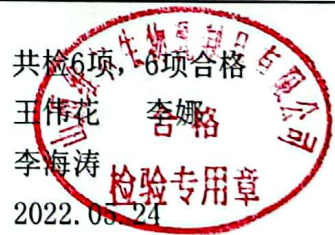 共检6项，6项合格
王伟花 李娜
李海涛
2022.05.24
合格
检验专用章